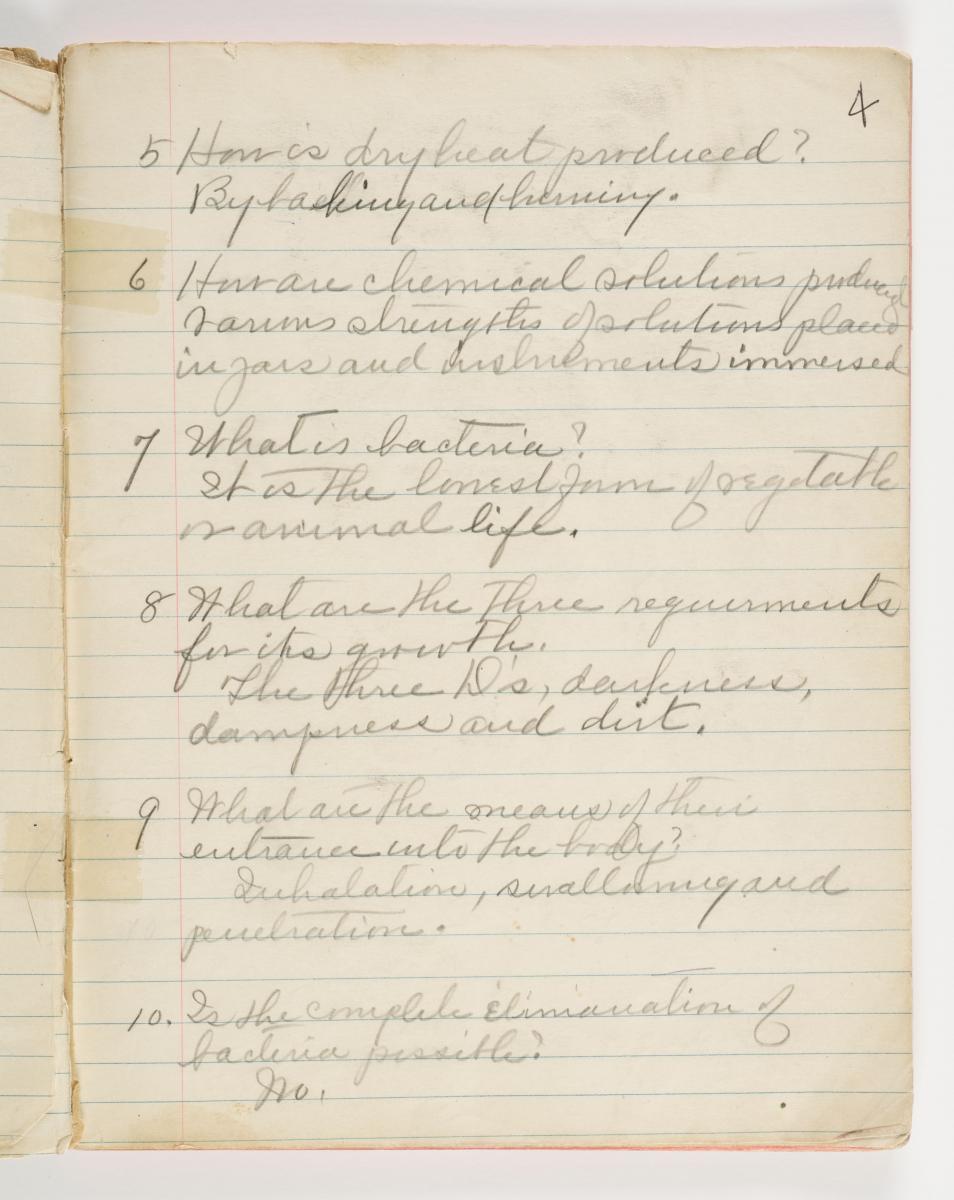 4
5 How is dry heat produced?
By baking and burning.
6 How are chemical solutions produced
various strengths of solutions placed
in jars and instruments immersed
7 What is bacteria?
It is the lowest form of vegetable
or animal life.
8 What are the three requirments
for its growth.
The three D's, darkness,
dampness and dirt.
9 What are the means of their
entrance into the body?
Inhalation, swallowing and
penetration.
10. Is the complete elimanation of
bacteria possible?
No.